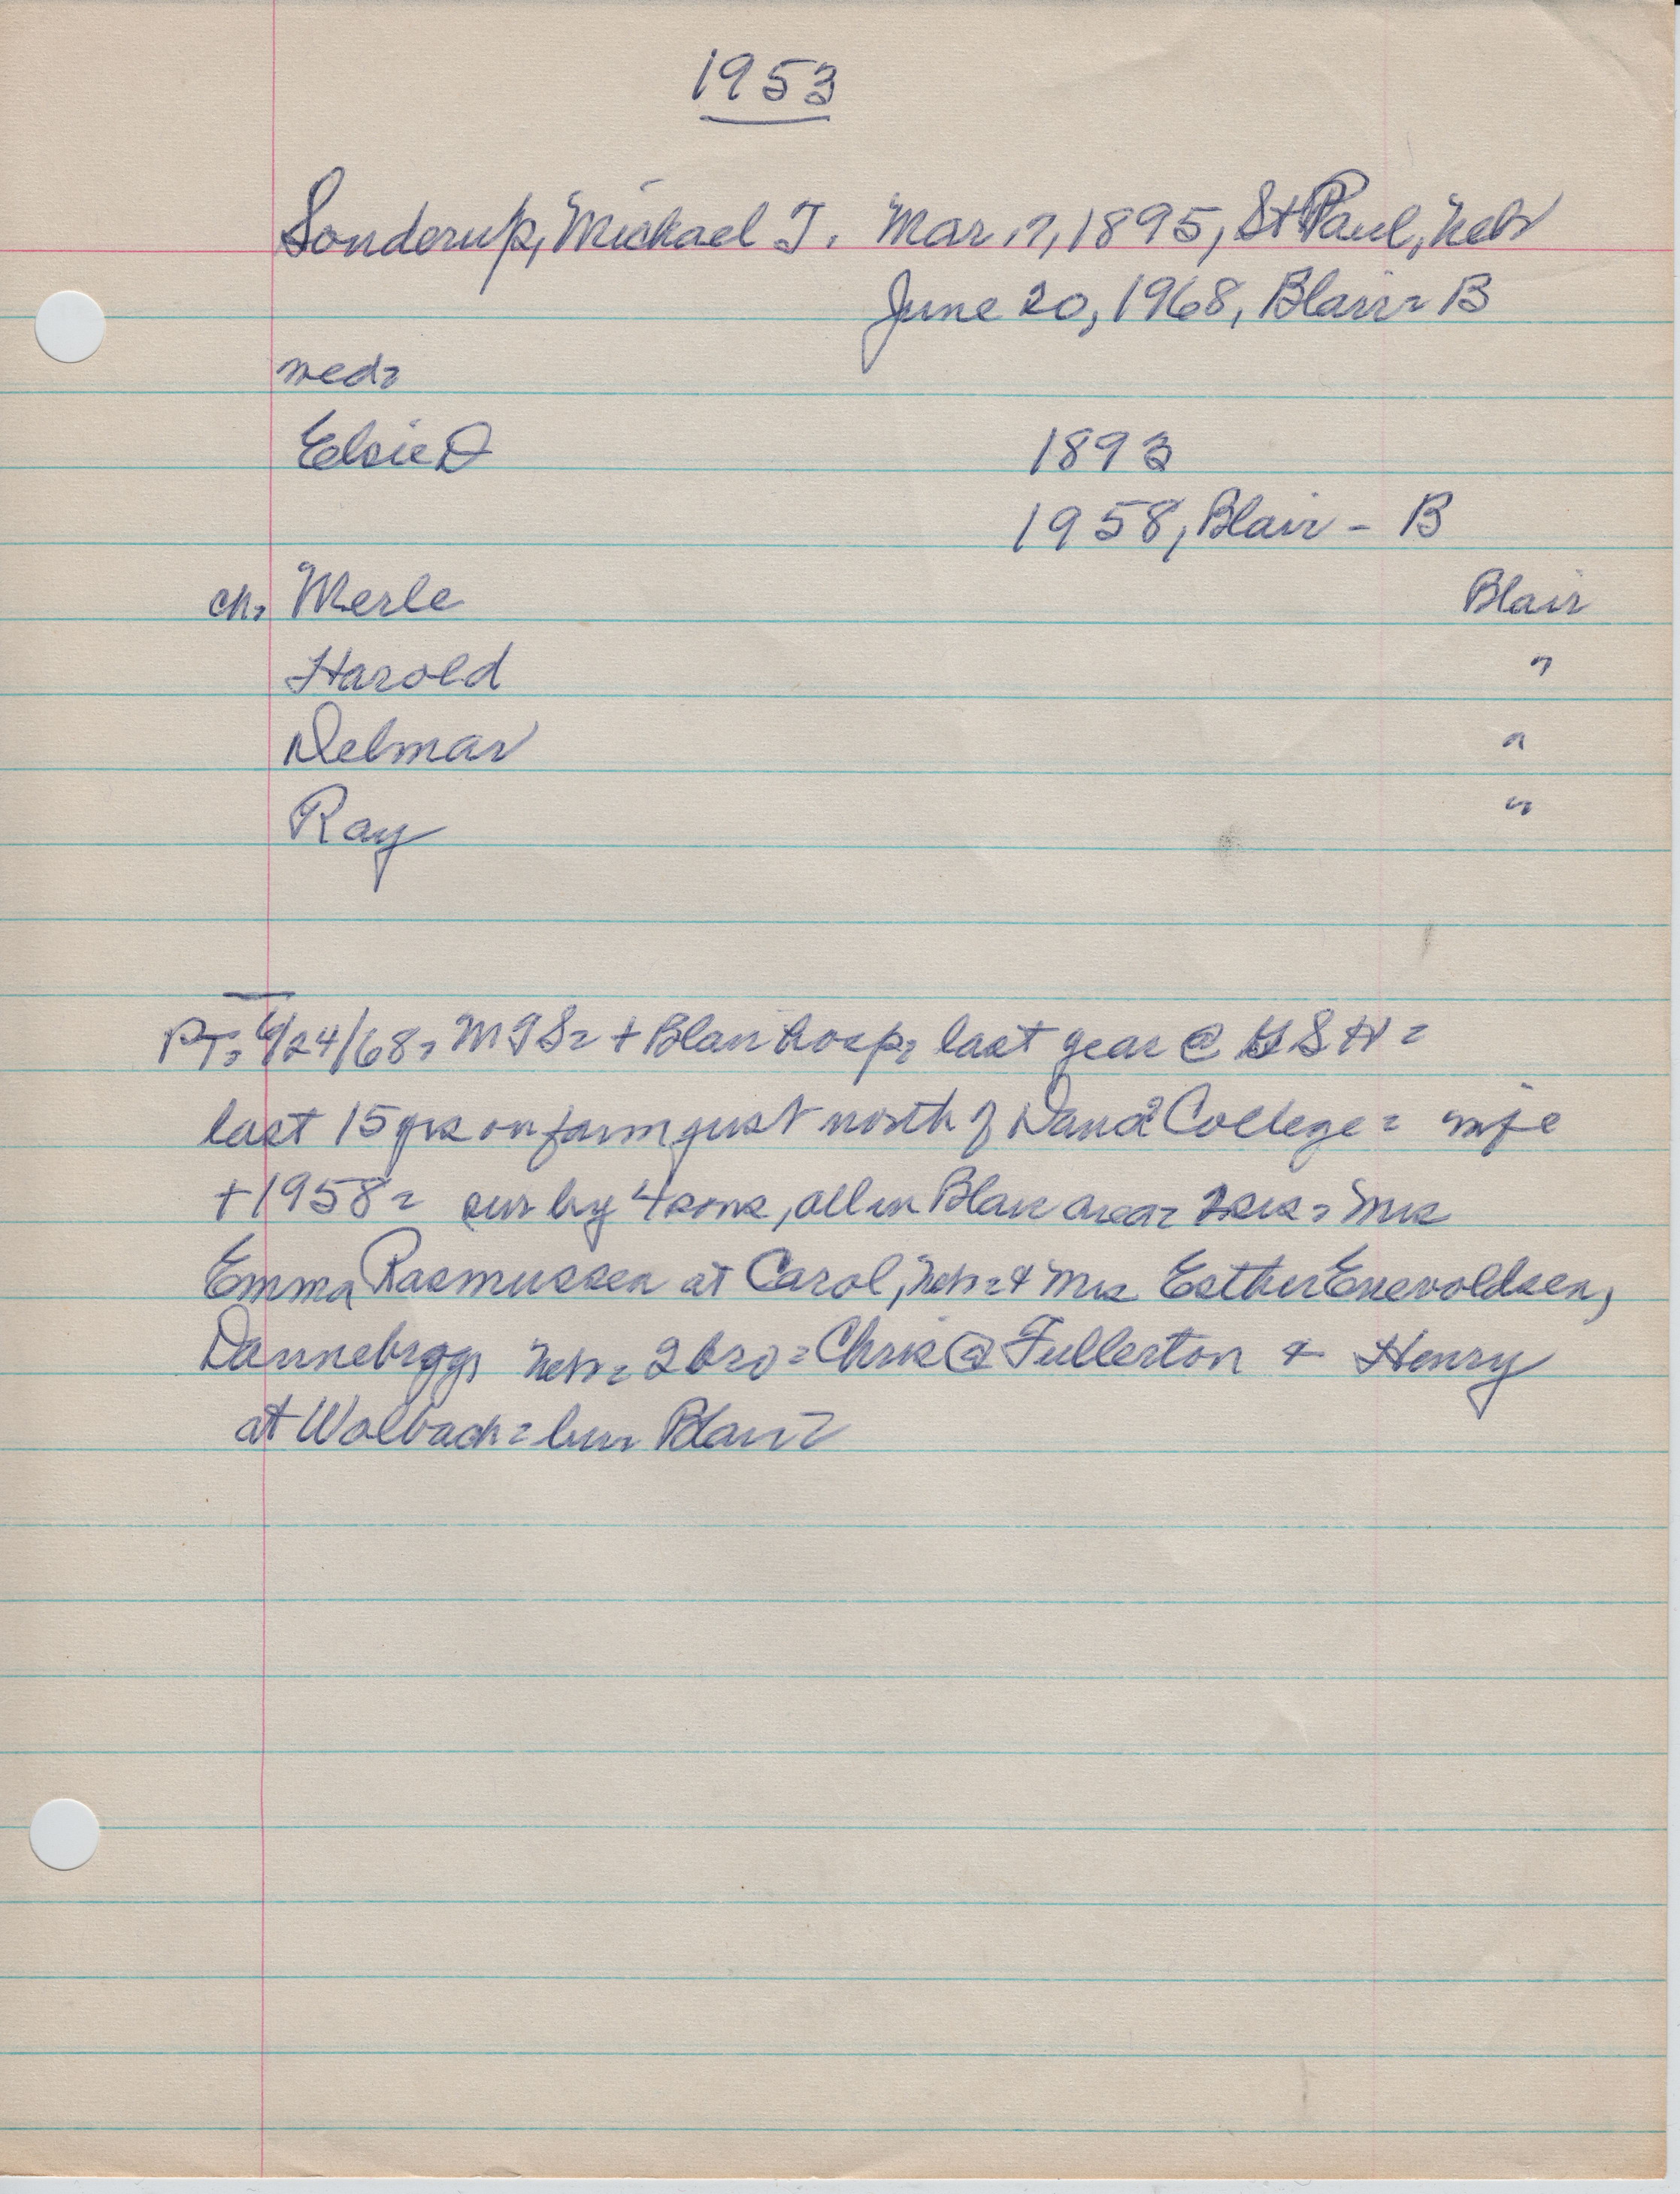 1953
Sonderup, Michael J. Mar. 7, 1895, St Paul, Neb
June 20, 1968, Blair = B
med =
Elsie D 1893
1958, Blair - B
ch. Merle Blair
Harold "
Delmar "
Ray "
PT = 6/24/68 = MJS = + Blair hosp, last year @ GSH =
last 15 yrs on farm just north of Dana College = wife
+ 1958 = sur by 4 sons, all in Blair area = 2 sis = Mrs
Emma Rasmussen at Carol, Neb = & Mrs Esther Enevoldsen,
Dannebrog, Neb = 2 bro = Chris @ Fullerton & Henry
at Wolbach = bur Blair =